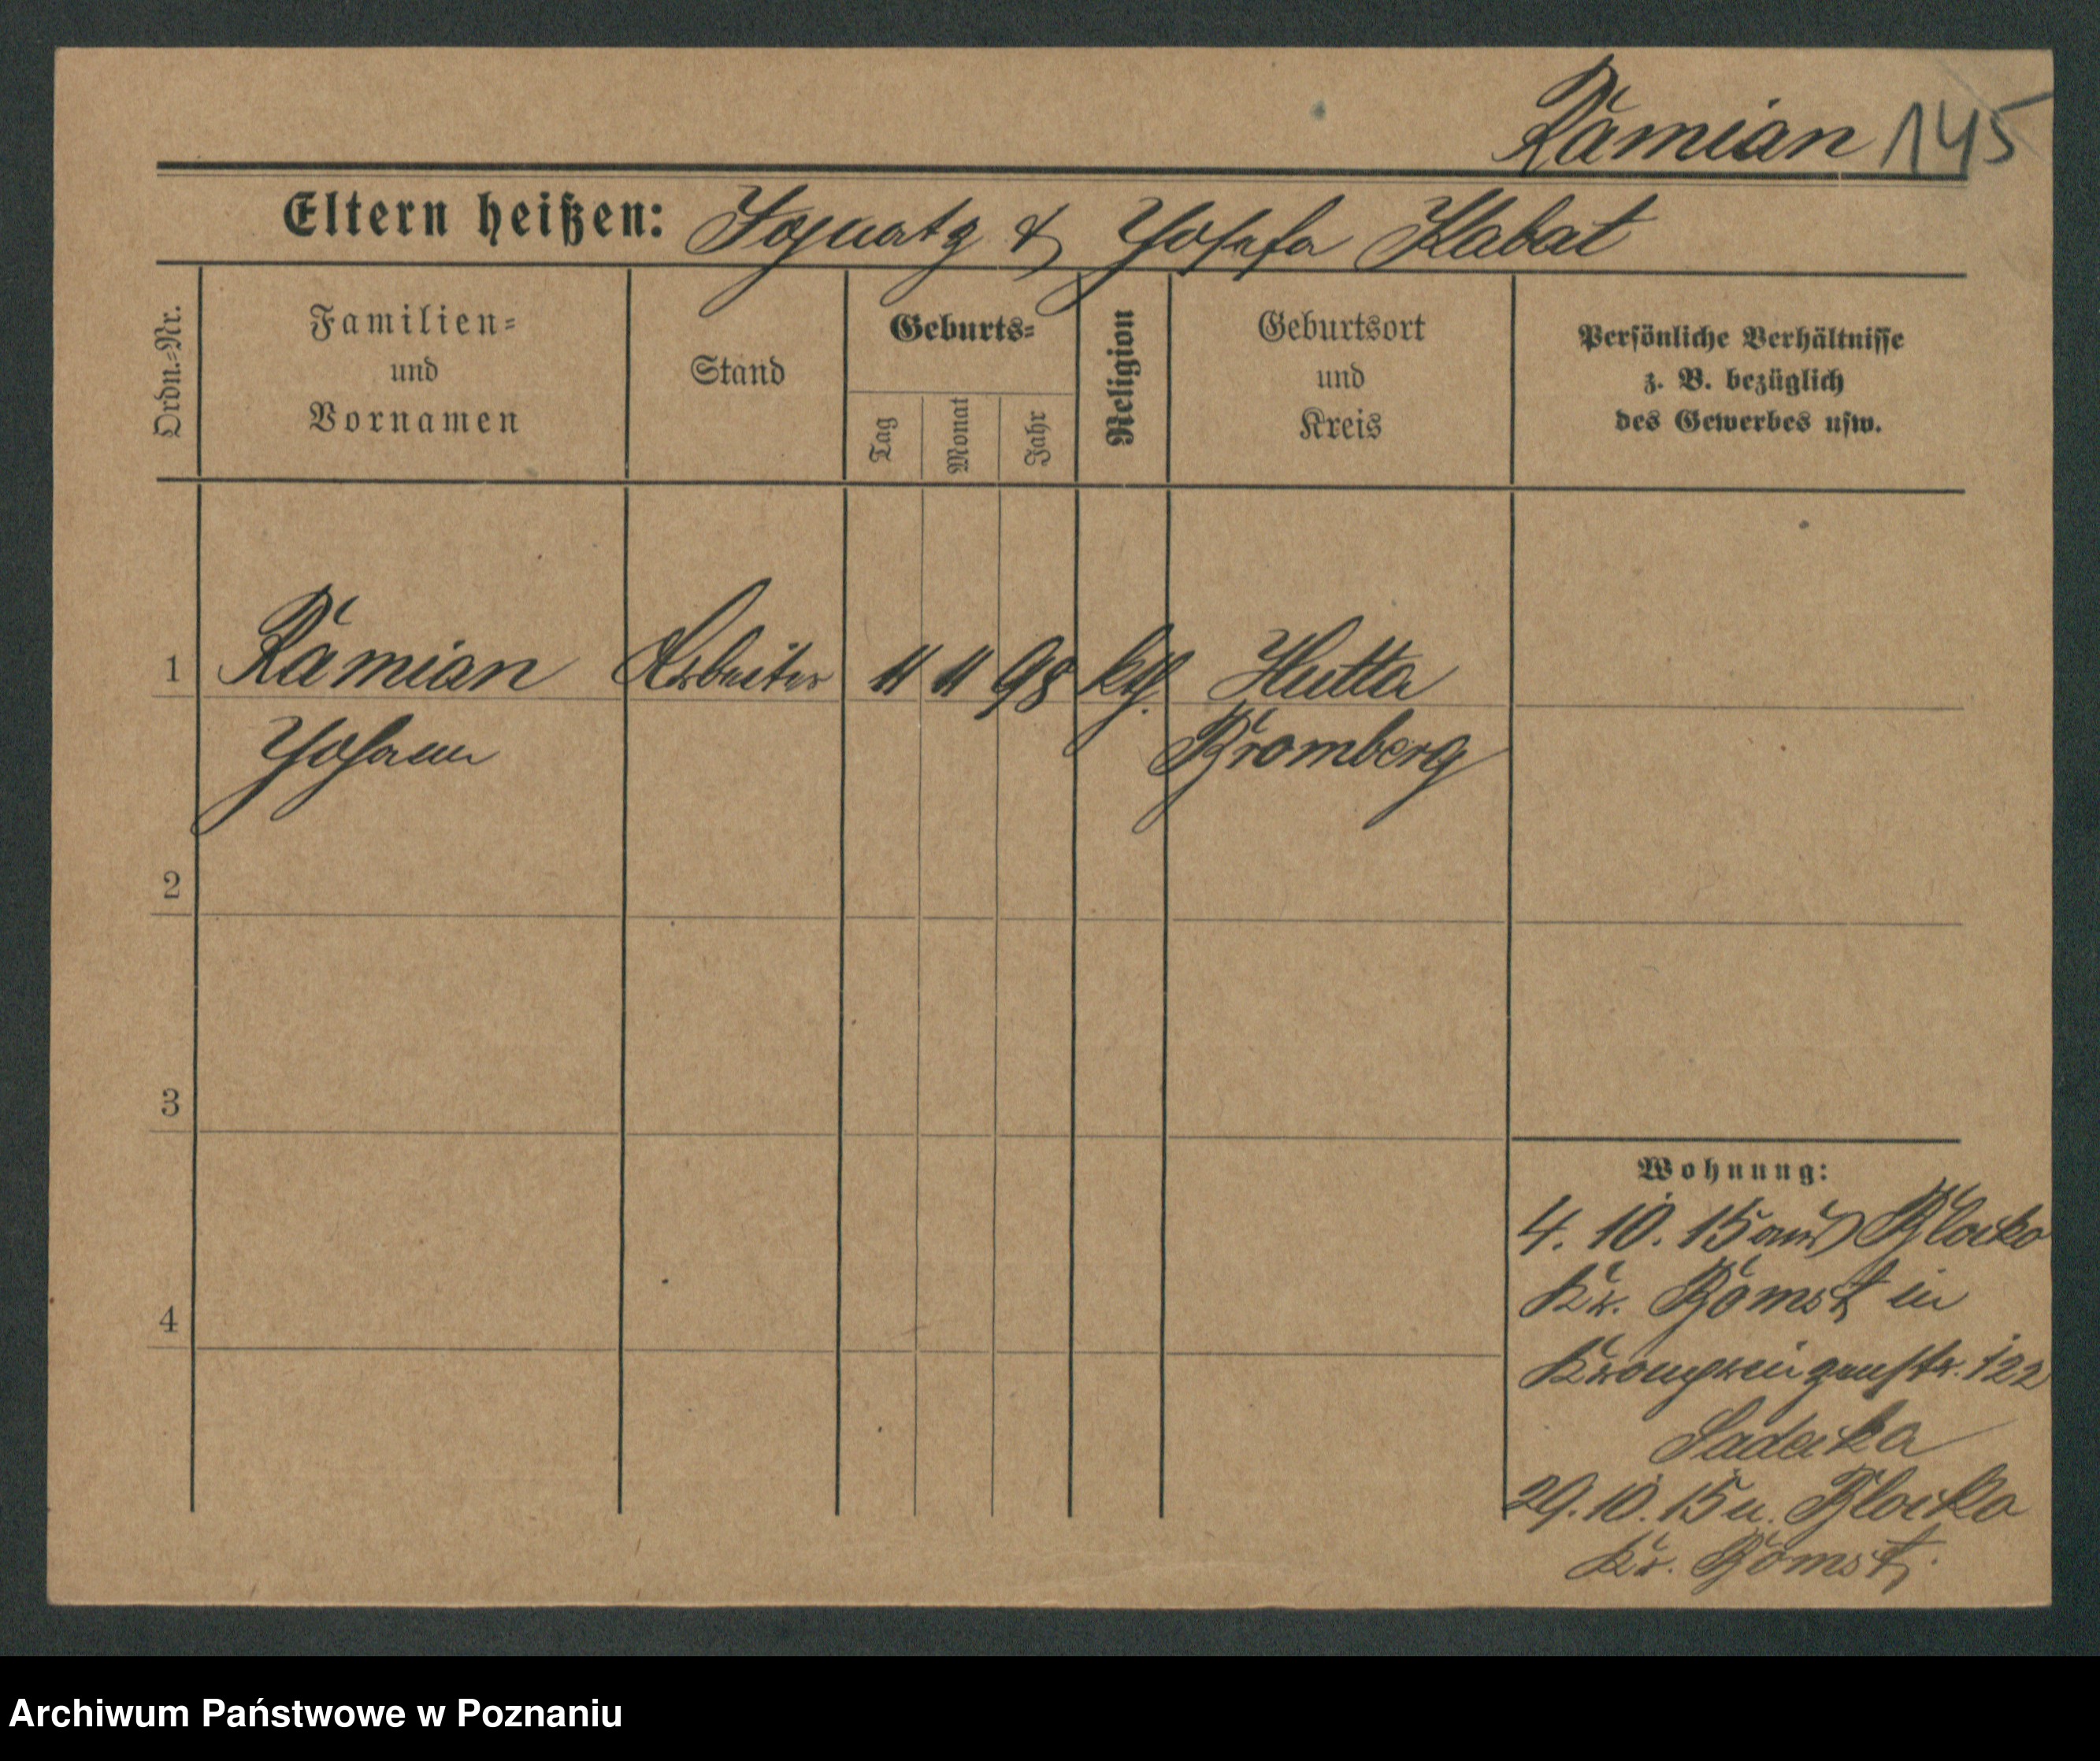 Rámian 145
Eltern heißen: Ignatz & Josefa Kabat
Ordn.-Nr.
Familien-
und
Vornamen
Stand
Geburts-
Tag
Monat
Jahr
Religion
Geburtsort
und
Kreis
Persönliche Verhältnisse
z. B. bezüglich
des Gewerbes usw.
1 Rámian Arbeiter 11 11 98 kth. Hutta
Johann Bromberg
2
3
4
Wohnung:
4. 10. 15 aus Blocko
Kr. Bomst in
Kronprinzenstr. 122
Sadecka
29. 10. 15 n. Blocko
Kr. Bomst.
Archiwum Państwowe w Poznaniu